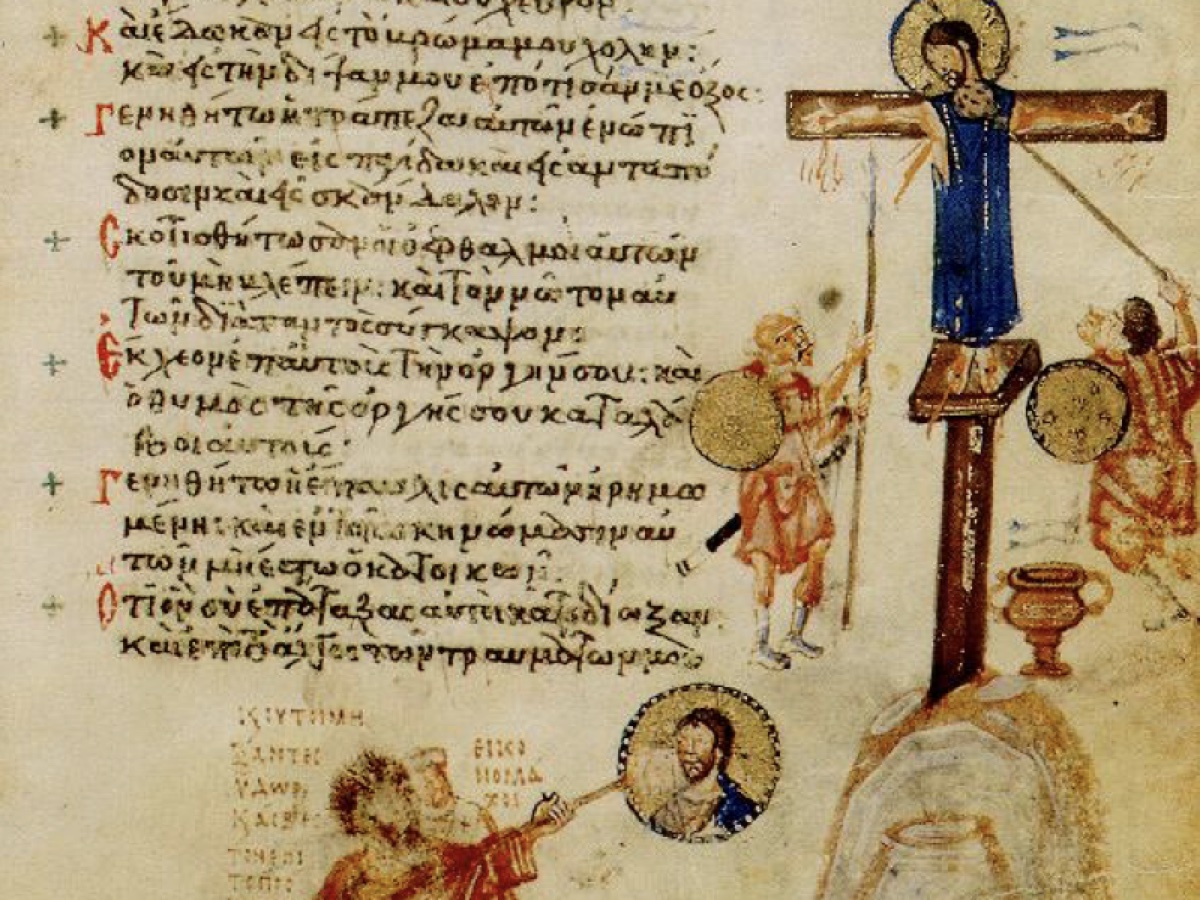 Καὶ ἔδωκαν εἰς τὸ βρῶμα μου χολὴν:
καὶ εἰς τὴν δίψαν μου ἐπότισάν με ὄξος:
Γενηθήτω ἡ τράπεζα αὐτῶν ἐνώπι
ον αὐτῶν εἰς παγίδα καὶ εἰς ἀνταπό
δοσιν καὶ εἰς σκάνδαλον:
Σκοτισθήτωσαν οἱ ὀφθαλμοὶ αὐτῶν
τοῦ μὴ βλέπειν: καὶ τὸν νῶτον αὐ
τῶν διὰ παντὸς σύγκαμψον:
Ἔκχεον ἐπ' αὐτοὺς τὴν ὀργήν σου: καὶ
ὁ θυμὸς τῆς ὀργῆς σου καταλά
βοι αὐτούς:
Γενηθήτω ἡ ἔπαυλις αὐτῶν ἠρημω
μένη: καὶ ἐν τοῖς σκηνώμασιν αὐ
τῶν μὴ ἔστω ὁ κατοικῶν:
Ὅτι ὃν σὺ ἐπάταξας αὐτοὶ κατεδίωξαν
καὶ ἐπὶ τὸ ἄλγος τῶν τραυμάτων μου
ΞΑΝΤΕς
ΥΔΩΡ
ΕΙΚΟ
ΝΟΜΑ
ΧΟΙ